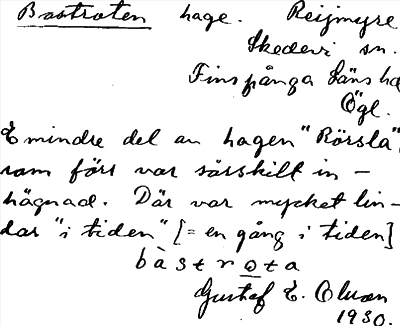 Bastroten hage. Reijmyre
Skedevi sn.
Finspånga Läns hd
Ögl.
E mindre del av hagen "Rörsla",
som förr var särskilt in-
hägnad. Där var mycket lin-
dar "i tiden" [= en gång i tiden]
bàstrota
Gustaf E. Olsson
1930.